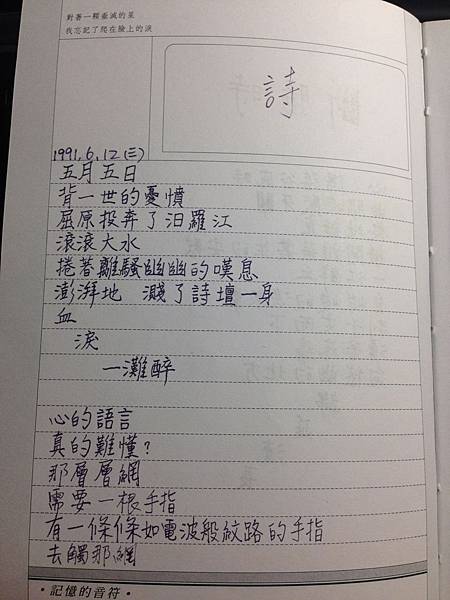 對著一顆垂滅的星
我忘記了爬在臉上的淚
詩
1991.6.12(三)
五月五日
背一世的憂憤
屈原投奔了汨羅江
滾滾大水
捲著離騷幽幽的嘆息
澎湃地 濺了詩壇一身
血
淚
一灘醉
心的語言
真的難懂?
那層層網
需要一根手指
有一條條如電波般紋路的手指
去觸那網
·記憶的音符·